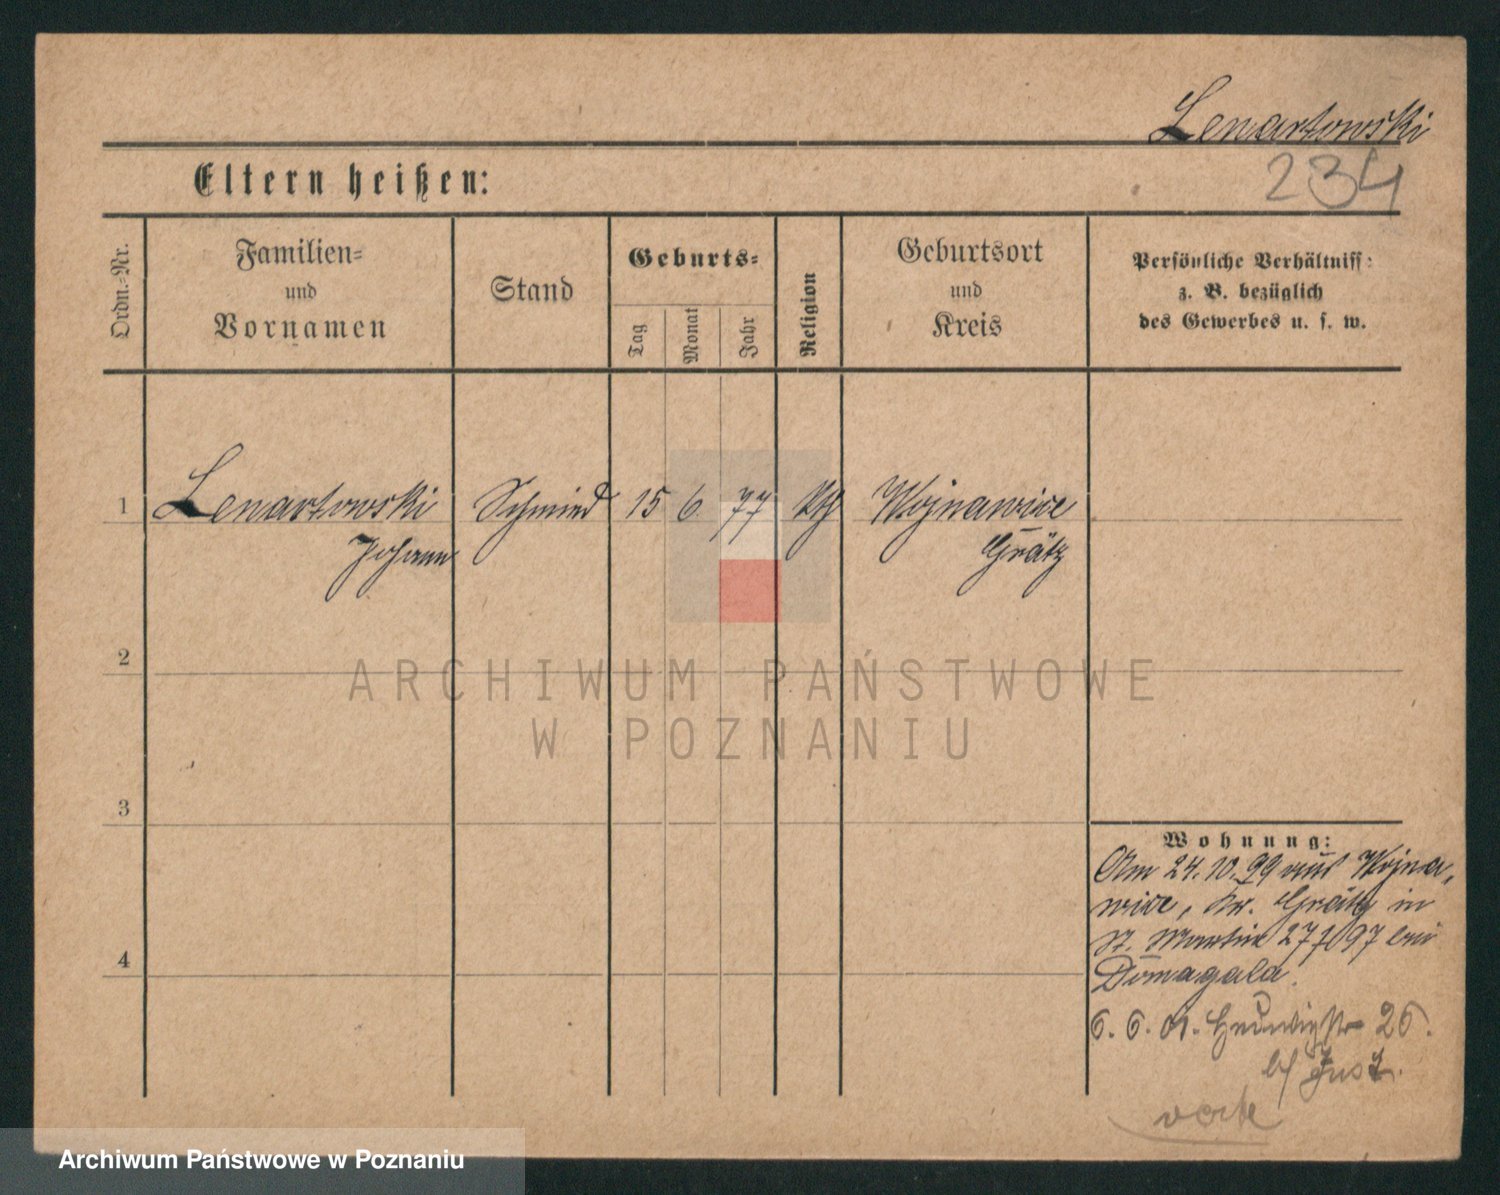 Lenartowski
234
Eltern heißen:
Ordn.-Nr.
Familien-
und
Vornamen
Stand
Geburts-
Tag
Monat
Jahr
Religion
Geburtsort
und
Kreis
Persönliche Verhältniss:
z. B. bezüglich
des Gewerbes u. s. w.
1
Lenartowski
Johann
Schmied
15
6
77
kth
Wojnawice
Grätz
2
3
4
Wohnung:
Am 24.10.99 aus Wojna-
wice, Kr. Grätz in
St. Martin 27 bei
Domagala.
6.6.01. Hedwigstr 26.
b/ Just.
ARCHIWUM PAŃSTWOWE
W POZNANIU
Archiwum Państwowe w Poznaniu